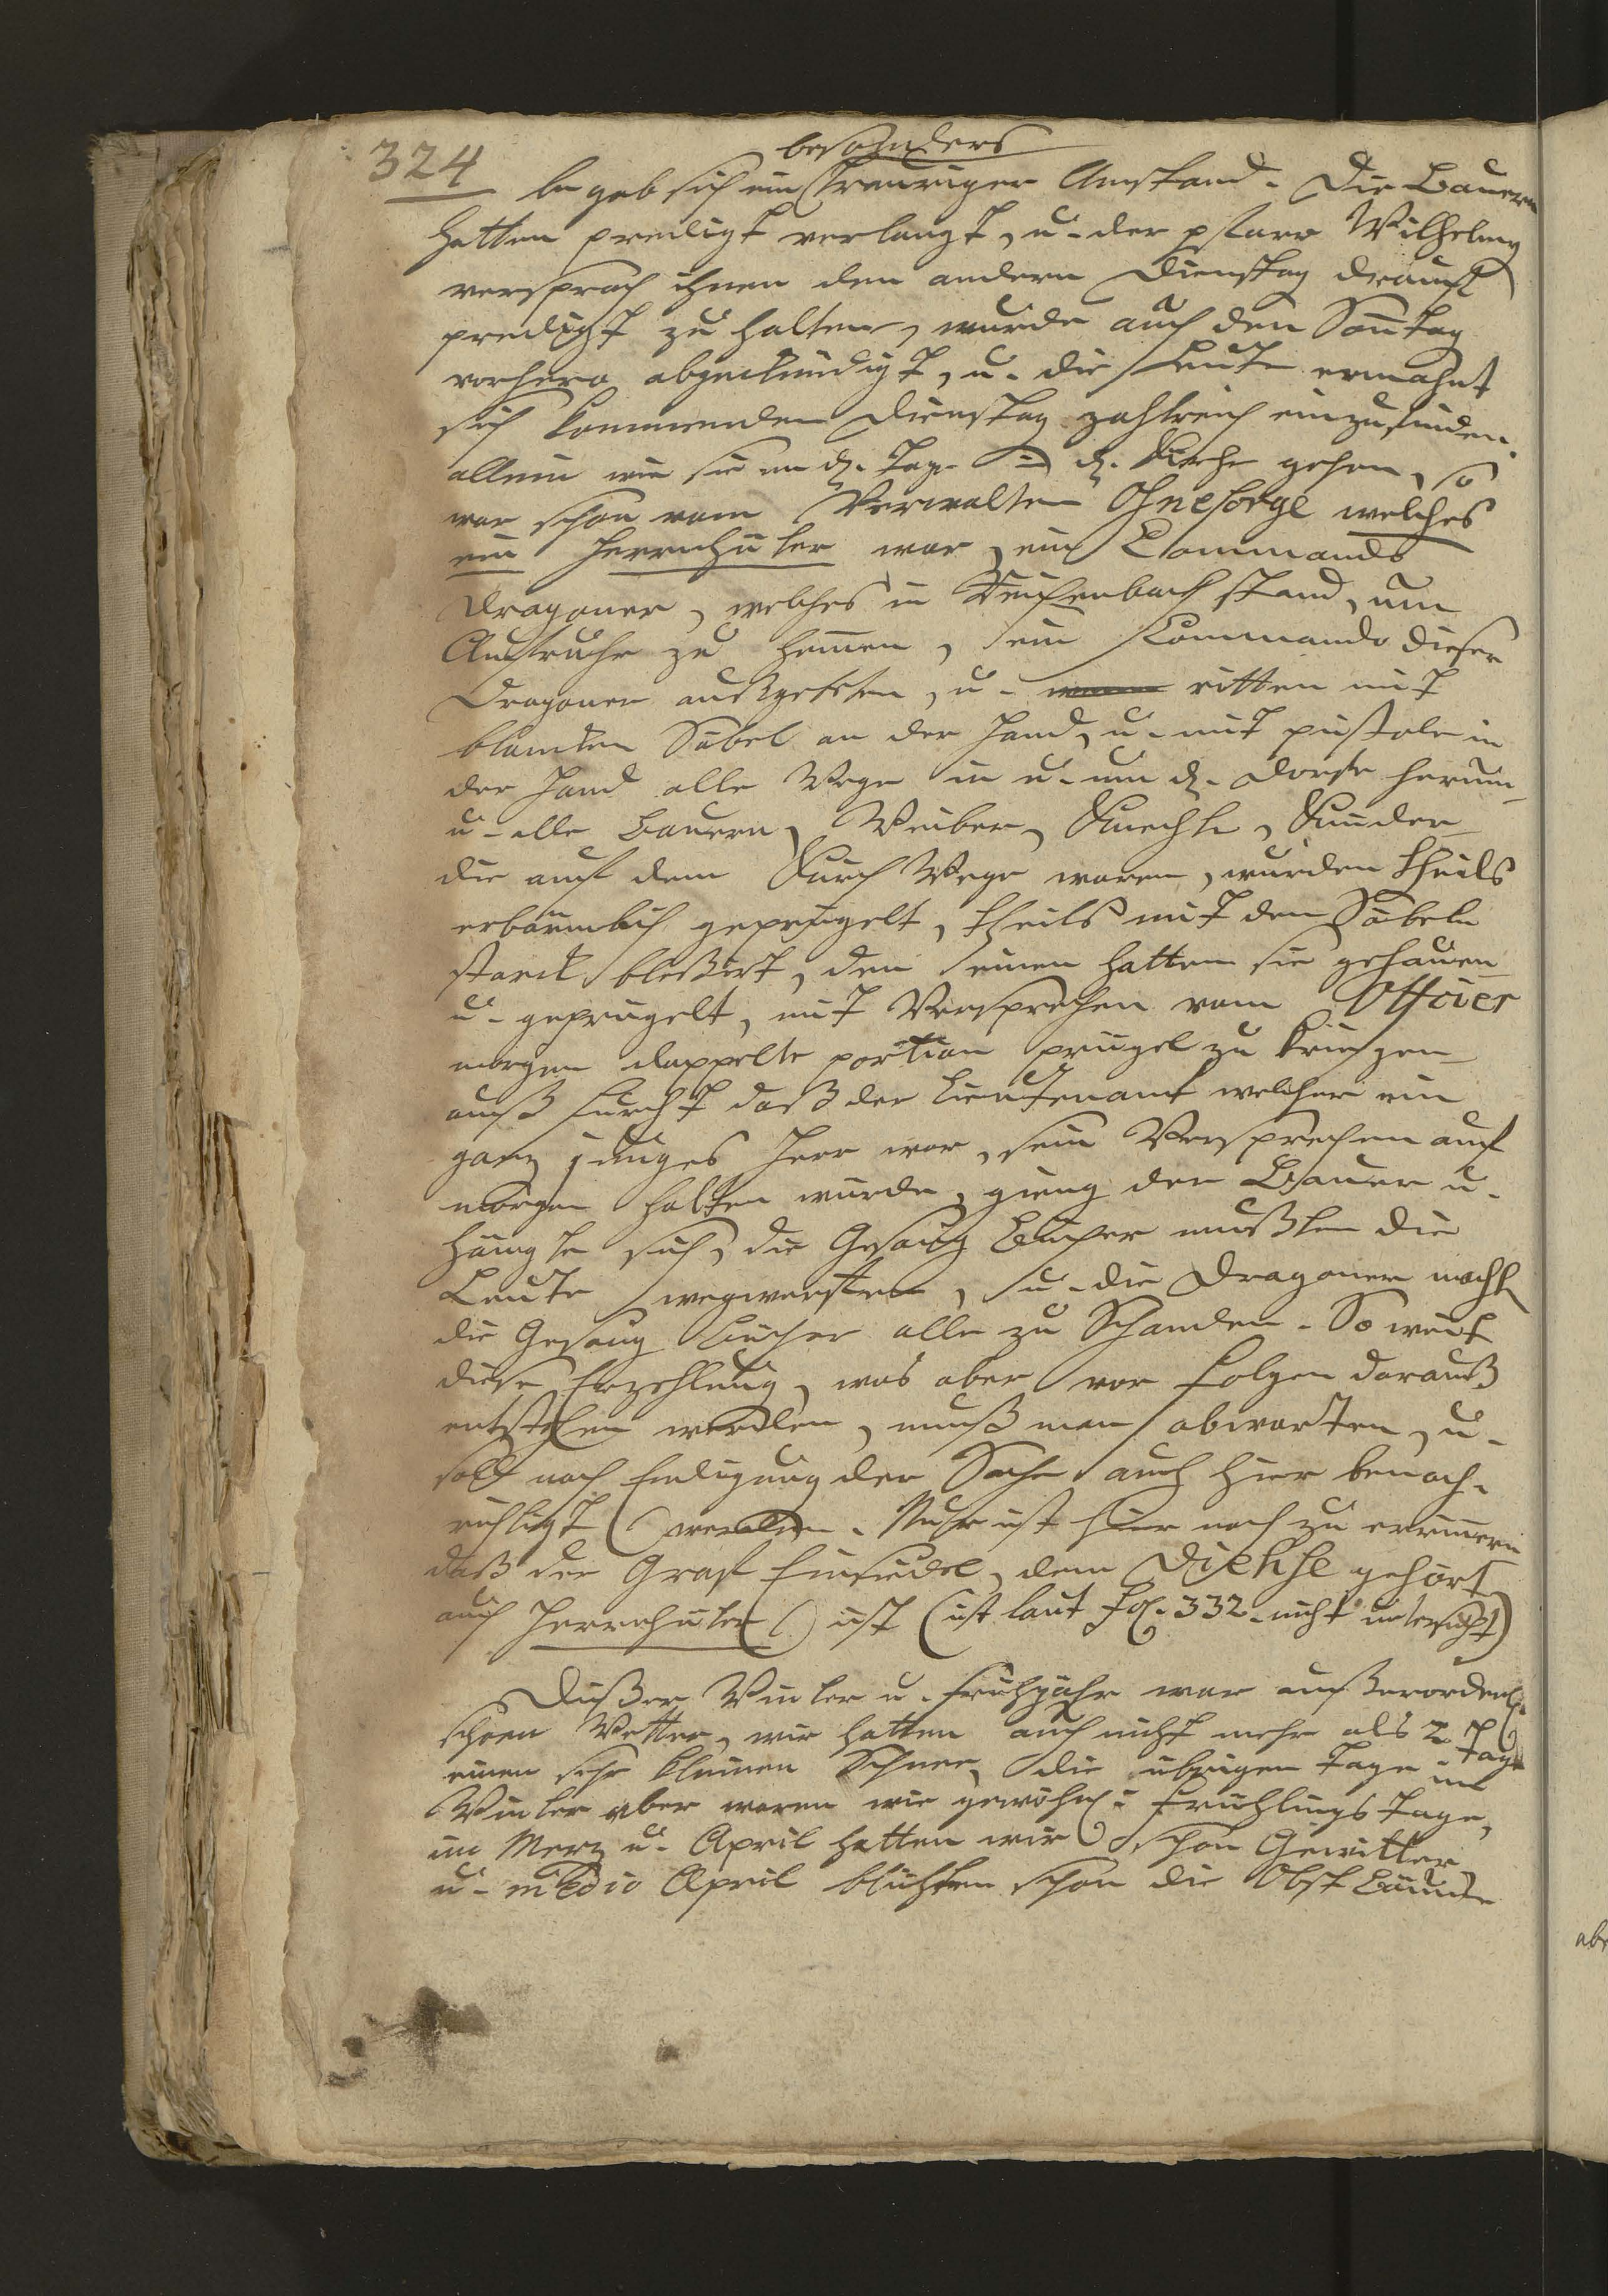 324
besonders
begab sich ein trauriger Umstand. Die Bauern
hatten prediigt verlangt, u. der pfarr Wilhelmy
versprach ihnen den andern Dienstag drauf
predigt zu halten, wurde auch den Sontag
vorhero abgekündigt, u. die Leute ermahnt
sich kommenden Dienstag zahlreich einzufinden.
allein wie sie an d. Tage in d. Kirche gehen, so
war schon vom Verwalter Ohnesorge welches
ein Herrnhuter war, ein Commando
Dragoner, welches in Reichenbach stand, um
Aufruhr zu hemen, ein Commando dieser
Dragoner außgeseßen, u. ritten mit
blancken Säbel an der Hand, u. mit pistole in
der Hand alle Wege in u. um d. Dorfe herum
u. alle Bauern, Weiber, Knechte, Kinder
die auf dem Kirch Wege waren, wurden theils
erbärmlich geprügelt, theils mit den Säbeln
starck bleßirt, den einen hatten sie gehauen
u. geprügelt, mit Versprechen vom Officier
morgen doppelte portion prügel zu kriegen
auß furcht daß der Lieutenant welcher ein
ganz junges Herr war, sein Versprechen auf
morgen halten würde, gieng der Bauer u.
hängte sich, die Gesang Bücher mußten die
Leute wegwerffen, u. die Dragoner macht
die Gesang Bücher alle zu Schanden. So weit
diese Erzehlung, was aber vor folgen darauß
entstehen werden, muß man abwarten, u.
soll nach Endigung der Sache auch hier benach-
richtigt werden. Nuhr ist hier noch zu erinnern
daß der Graf Einsiedel, dem Diehse gehört
auch Herrnhuter ist (ist laut fol. 332. nicht untersucht)
Dießer Winter u. frühjahr war außerordentl.
schoen Wetter, wir hatten auch nicht mehr als 2 Tage
einen sehr kleinen Schnee, die übrigen Tage im
Winter aber waren wie gewöhnl. Frühlings Tage,
im Merz u. April hatten wir schon Gewitter
u. medio April blühten schon die Obst Bäume